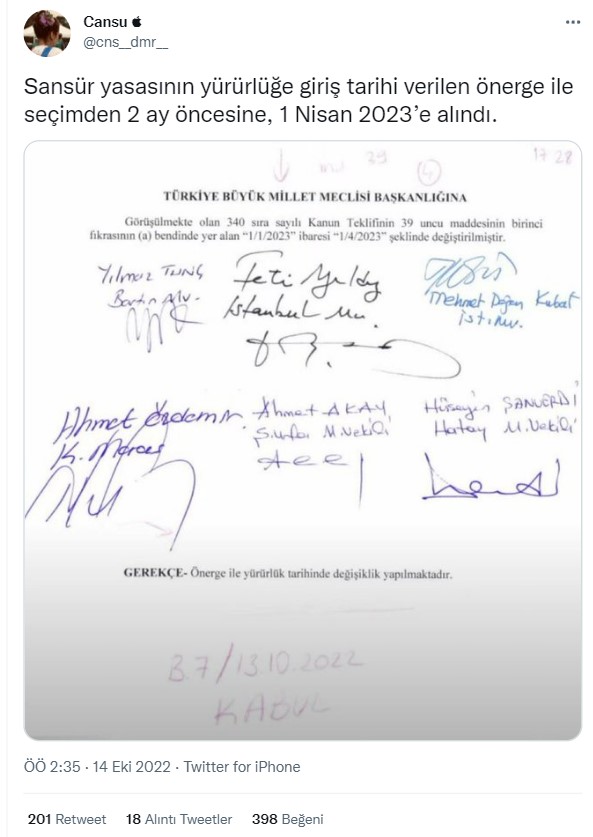 Cansu
@cns__dmr__
Sansür yasasının yürürlüğe giriş tarihi verilen önerge ile
seçimden 2 ay öncesine, 1 Nisan 2023’e alındı.
29
4
17 28
TÜRKİYE BÜYÜK MİLLET MECLİSİ BAŞKANLIĞINA
Görüşülmekte olan 340 sıra sayılı Kanun Teklifinin 39 uncu maddesinin birinci
fıkrasının (a) bendinde yer alan “1/1/2023” ibaresi “1/4/2023” şeklinde değiştirilmiştir.
Yılmaz TUNÇ
Bartın Mv.
Feti Yıldız
İstanbul Mv.
Mehmet Doğan Kubat
İst. Mv.
Ahmet Özdemir
K. Maraş
Ahmet AKAY
Ş.Urfa M.Vekili
Hüseyin ŞANVERDİ
Hatay M.Vekili
GEREKÇE- Önerge ile yürürlük tarihinde değişiklik yapılmaktadır.
B.7/13.10.2022
KABUL
ÖÖ 2:35 · 14 Eki 2022 · Twitter for iPhone
201 Retweet 18 Alıntı Tweetler 398 Beğeni